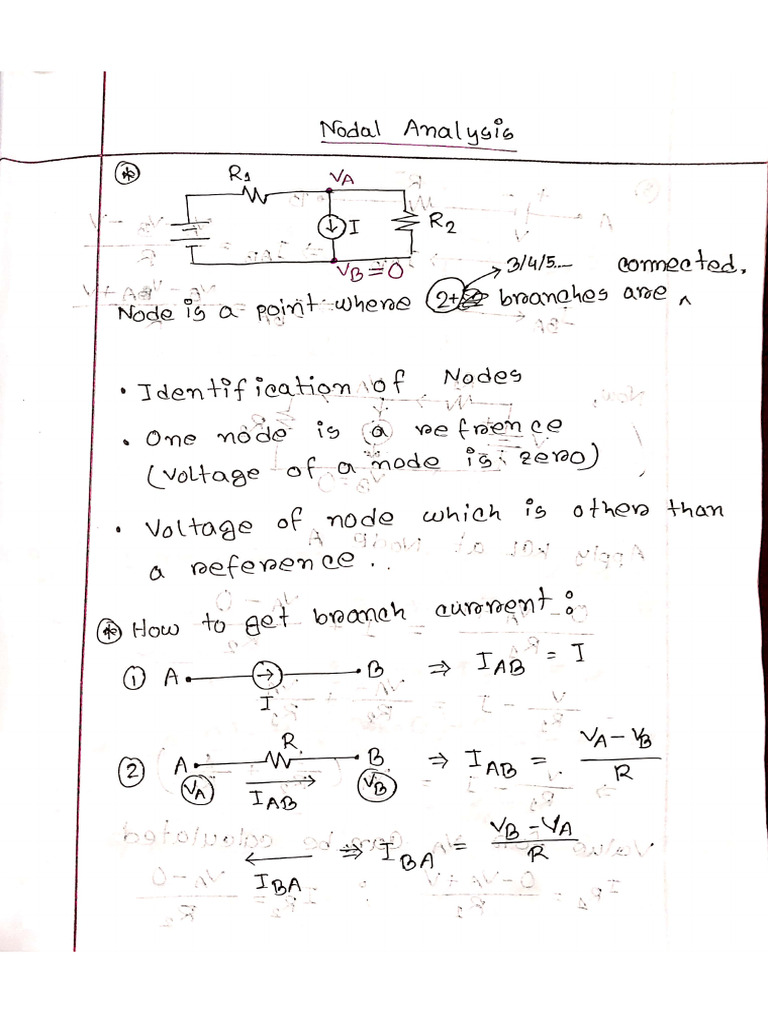 Nodal Analysis
R1
VA
I
R2
VB = 0
3/4/5....
connected.
Node is a point where 2+ branches are ^
• Identification of Nodes
• One node is a refrence
(voltage of a node is zero)
• Voltage of node which is other than
a reference..
* How to get branch current:
① A B ⇒ IAB = I
I
② A R B ⇒ IAB = (VA - VB)/R
VA IAB VB
IBA ⇒ IBA = (VB - VA)/R